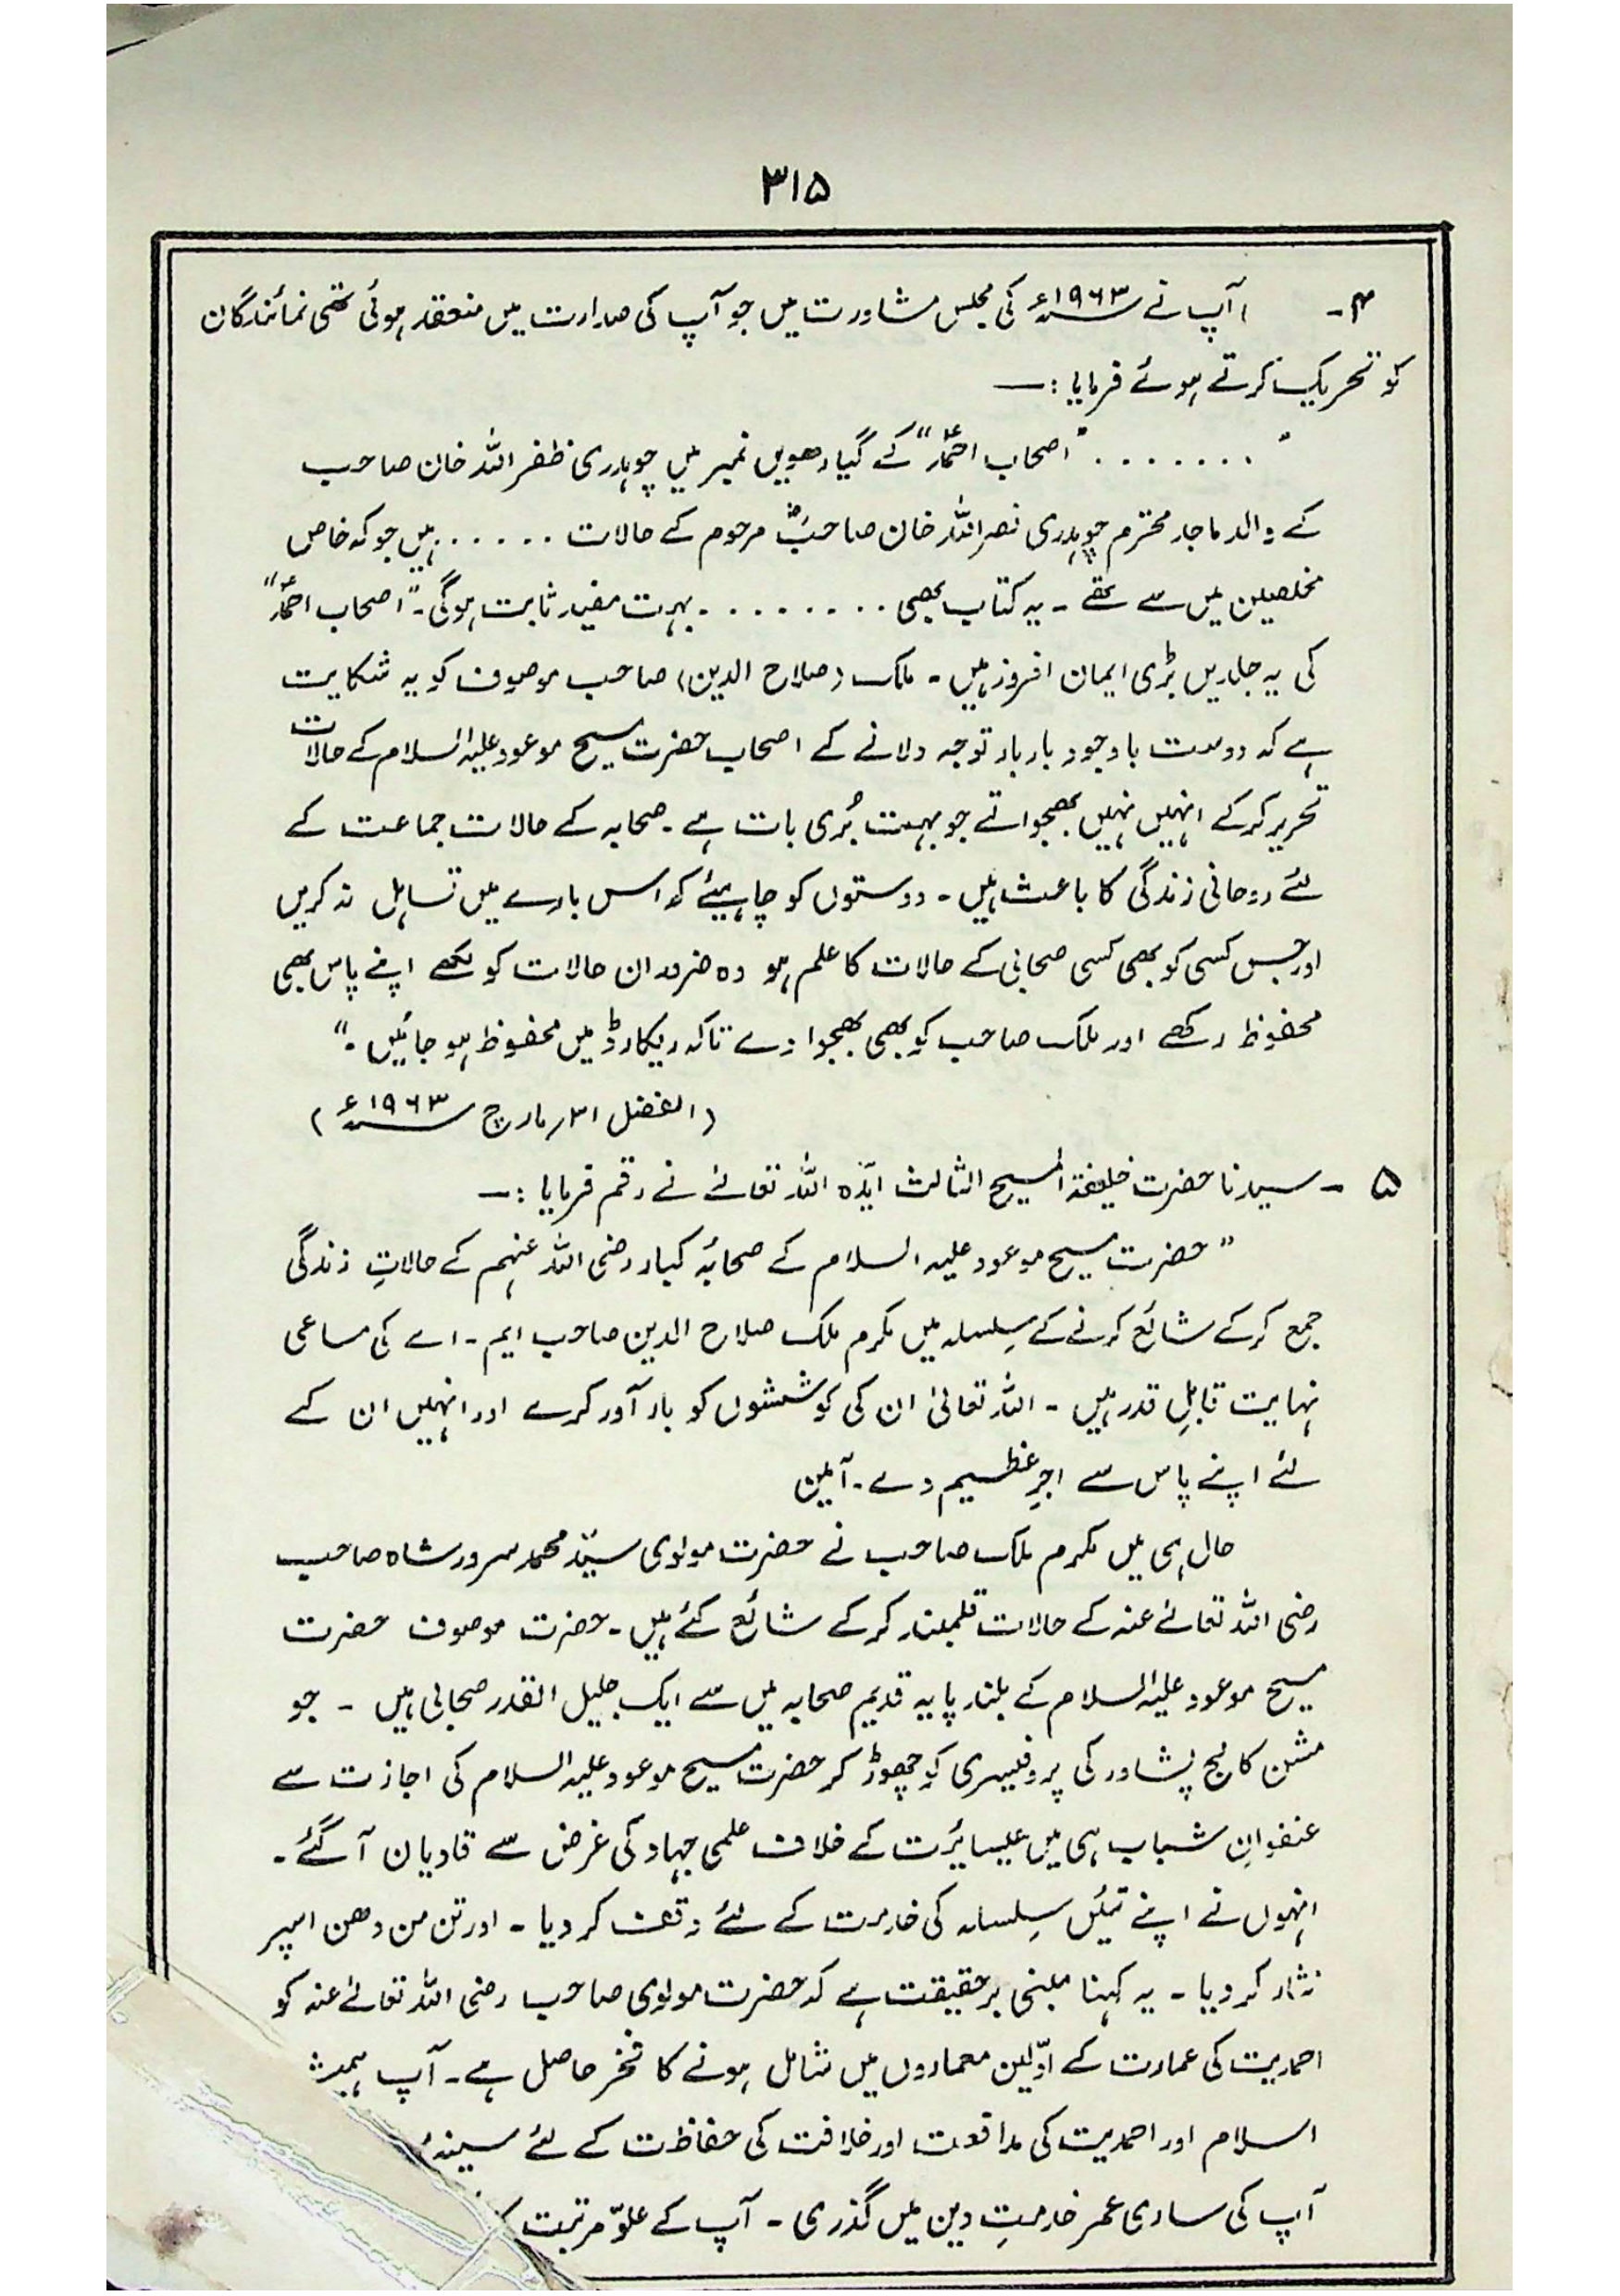 ۳۱۵
۴- آپ نے ۱۹۶۳ء کی مجلس مشاورت میں جو آپ کی صدارت میں منعقد ہوئی تھی نمائندگان
کو تحریک کرتے ہوئے فرمایا :—
" ....... "اصحاب احمدؑ" کے گیارھویں نمبر میں چوہدری ظفر اللہ خان صاحب
کے والد ماجد محترم چوہدری نصر اللہ خان صاحبؓ مرحوم کے حالات ...... ہیں جو کہ خاص
مخلصین میں سے تھے ۔ یہ کتاب بھی ........ بہت مفید ثابت ہوگی۔ "اصحاب احمدؑ"
کی یہ جلدیں بڑی ایمان افروز ہیں ۔ ملک (صلاح الدین) صاحب موصوف کو یہ شکایت
ہے کہ دوست باوجود بار بار توجہ دلانے کے اصحاب حضرت مسیح موعود علیہ السلام کے حالات
تحریر کرکے انہیں نہیں بھجواتے جو بہت بُری بات ہے ۔ صحابہ کے حالات جماعت کے
لئے روحانی زندگی کا باعث ہیں ۔ دوستوں کو چاہیئے کہ اس بارے میں تساہل نہ کریں
اور جس کسی کو بھی کسی صحابی کے حالات کا علم ہو وہ ضرور ان حالات کو لکھے اپنے پاس بھی
محفوظ رکھے اور ملک صاحب کو بھی بھجوا دے تاکہ ریکارڈ میں محفوظ ہو جائیں ۔"
(الفضل ۳۱ر مارچ ۱۹۶۳ء)
۵ - سیدنا حضرت خلیفۃ المسیح الثالث ایدہ اللہ تعالےٰ نے رقم فرمایا :—
"حضرت مسیح موعود علیہ السلام کے صحابۂ کبار رضی اللہ عنہم کے حالاتِ زندگی
جمع کرکے شائع کرنے کے سِلسلہ میں مکرم ملک صلاح الدین صاحب ایم ۔ اے کی مساعی
نہایت قابلِ قدر ہیں ۔ اللہ تعالیٰ ان کی کوششوں کو بار آور کرے اور انہیں ان کے
لئے اپنے پاس سے اجرِ عظیم دے ۔ آمین
حال ہی میں مکرم ملک صاحب نے حضرت مولوی سیّد محمد سرور شاہ صاحب
رضی اللہ تعالےٰ عنہ کے حالات قلمبند کرکے شائع کئے ہیں ۔ حضرت موصوف حضرت
مسیح موعود علیہ السلام کے بلند پایہ قدیم صحابہ میں سے ایک جلیل القدر صحابی ہیں ۔ جو
مشن کالج پشاور کی پروفیسری کو چھوڑ کر حضرت مسیح موعود علیہ السلام کی اجازت سے
عنفوانِ شباب ہی میں عیسائیت کے خلاف علمی جہاد کی غرض سے قادیان آ گئے ۔
انہوں نے اپنے تئیں سِلسلہ کی خدمت کے لئے وقف کر دیا ۔ اور تن من دھن اسپر
نثار کر دیا ۔ یہ کہنا مبنی بر حقیقت ہے کہ حضرت مولوی صاحب رضی اللہ تعالےٰ عنہ کو
احمدیت کی عمارت کے اوّلین معماروں میں شامل ہونے کا فخر حاصل ہے ۔ آپ
اسلام اور احمدیت کی مدافعت اور خلافت کی حفاظت کے لئے سینۂ
آپ کی ساری عمر خدمتِ دین میں گذری ۔ آپ کے علوّ مرتبت